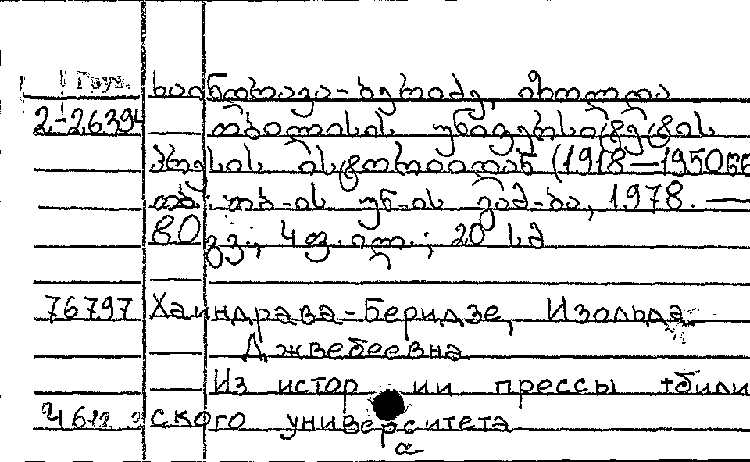 Груз.
ხაინდრავა-ბერიძე, იზოლდა
2-26394 თბილისის უნივერსიტეტის
პრესის ისტორიიდან (1918—1950წწ
თბ: თბ-ის უნ-ის გამ-ბა, 1978. —
80 გვ., 4 ფ. ილ.; 20 სმ
76797 Хаиндрава-Беридзе, Изольда
Джвебеевна
Из истории прессы тбили
ского университета